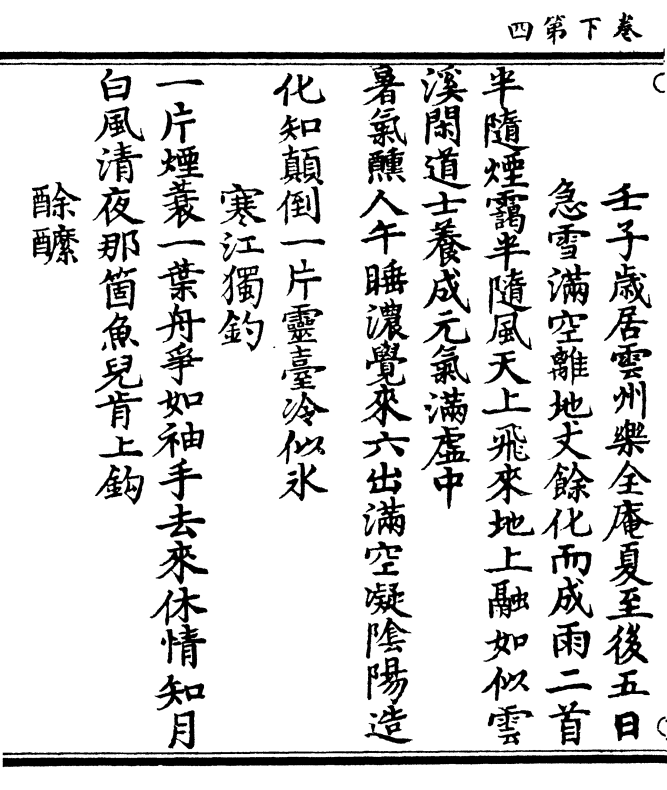 卷下第四
壬子歲居雲州樂全庵夏至後五日
急雪滿空離地丈餘化而成雨二首
半隨煙靄半隨風天上飛來地上融如似雲
溪閑道士養成元氣滿虛中
暑氣醺人午睡濃覺來六出滿空凝陰陽造
化知顛倒一片靈臺冷似氷
寒江獨釣
一片煙蓑一葉舟爭如袖手去來休情知月
白風清夜那箇魚兒肯上鈎
酴醿